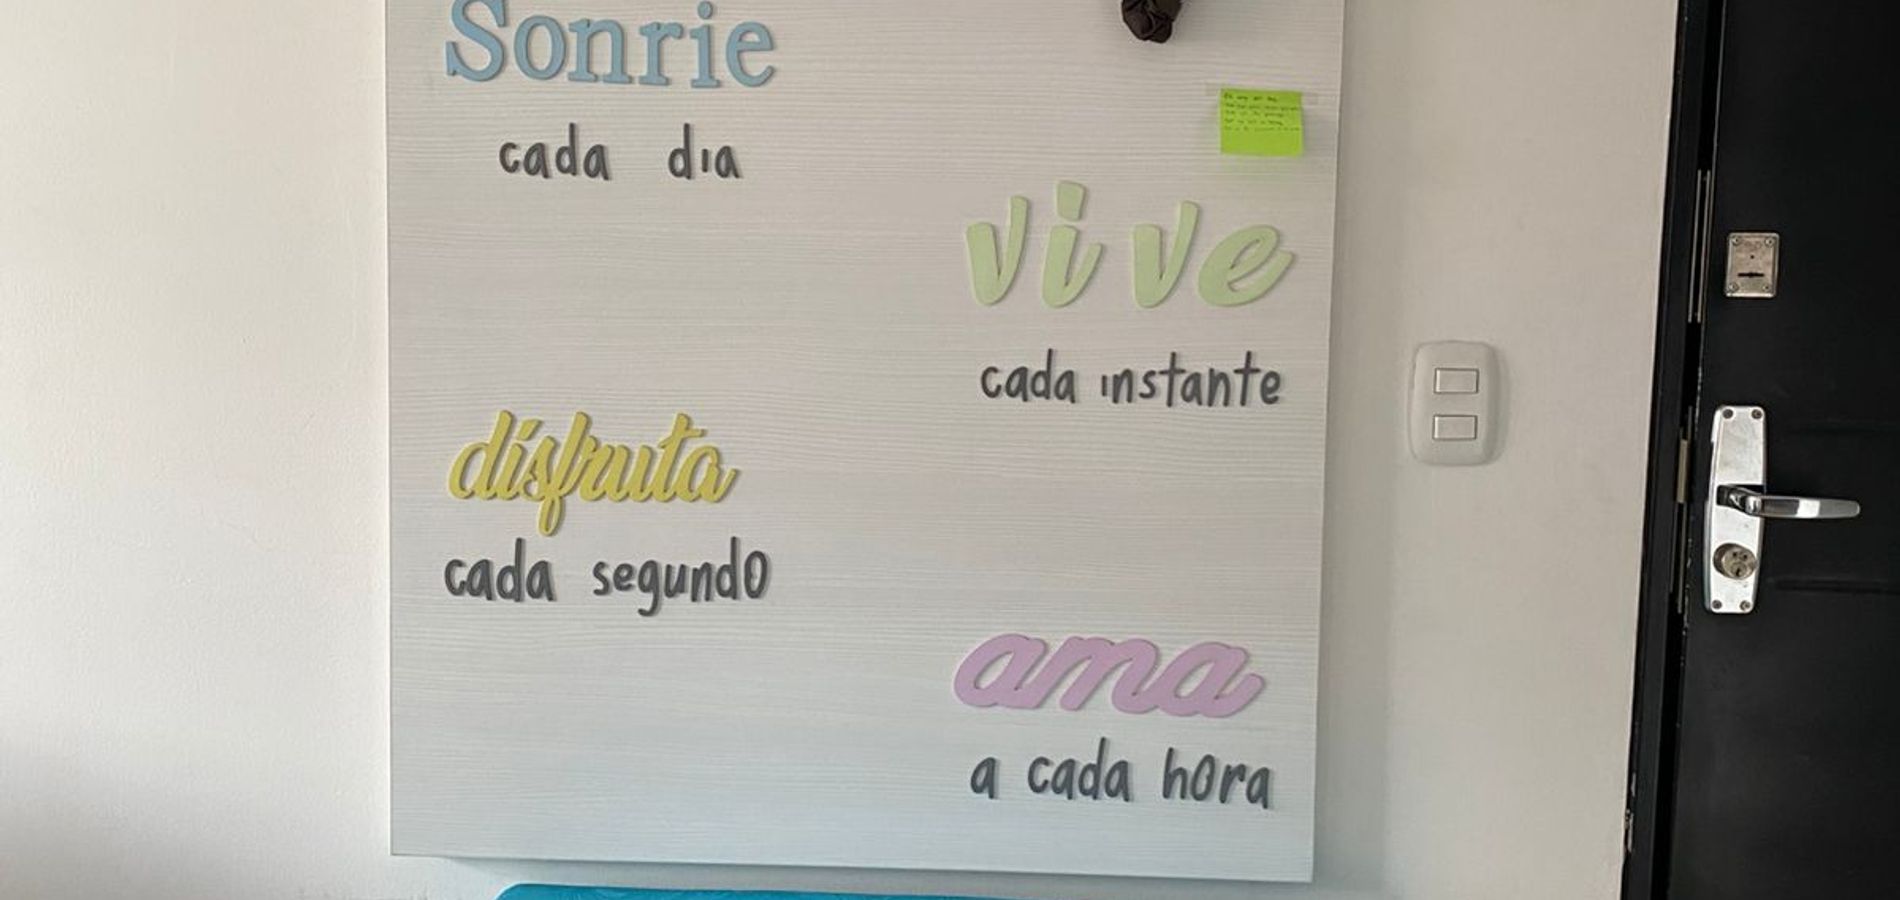 Sonrie
cada dia
vive
cada instante
disfruta
cada segundo
ama
a cada hora